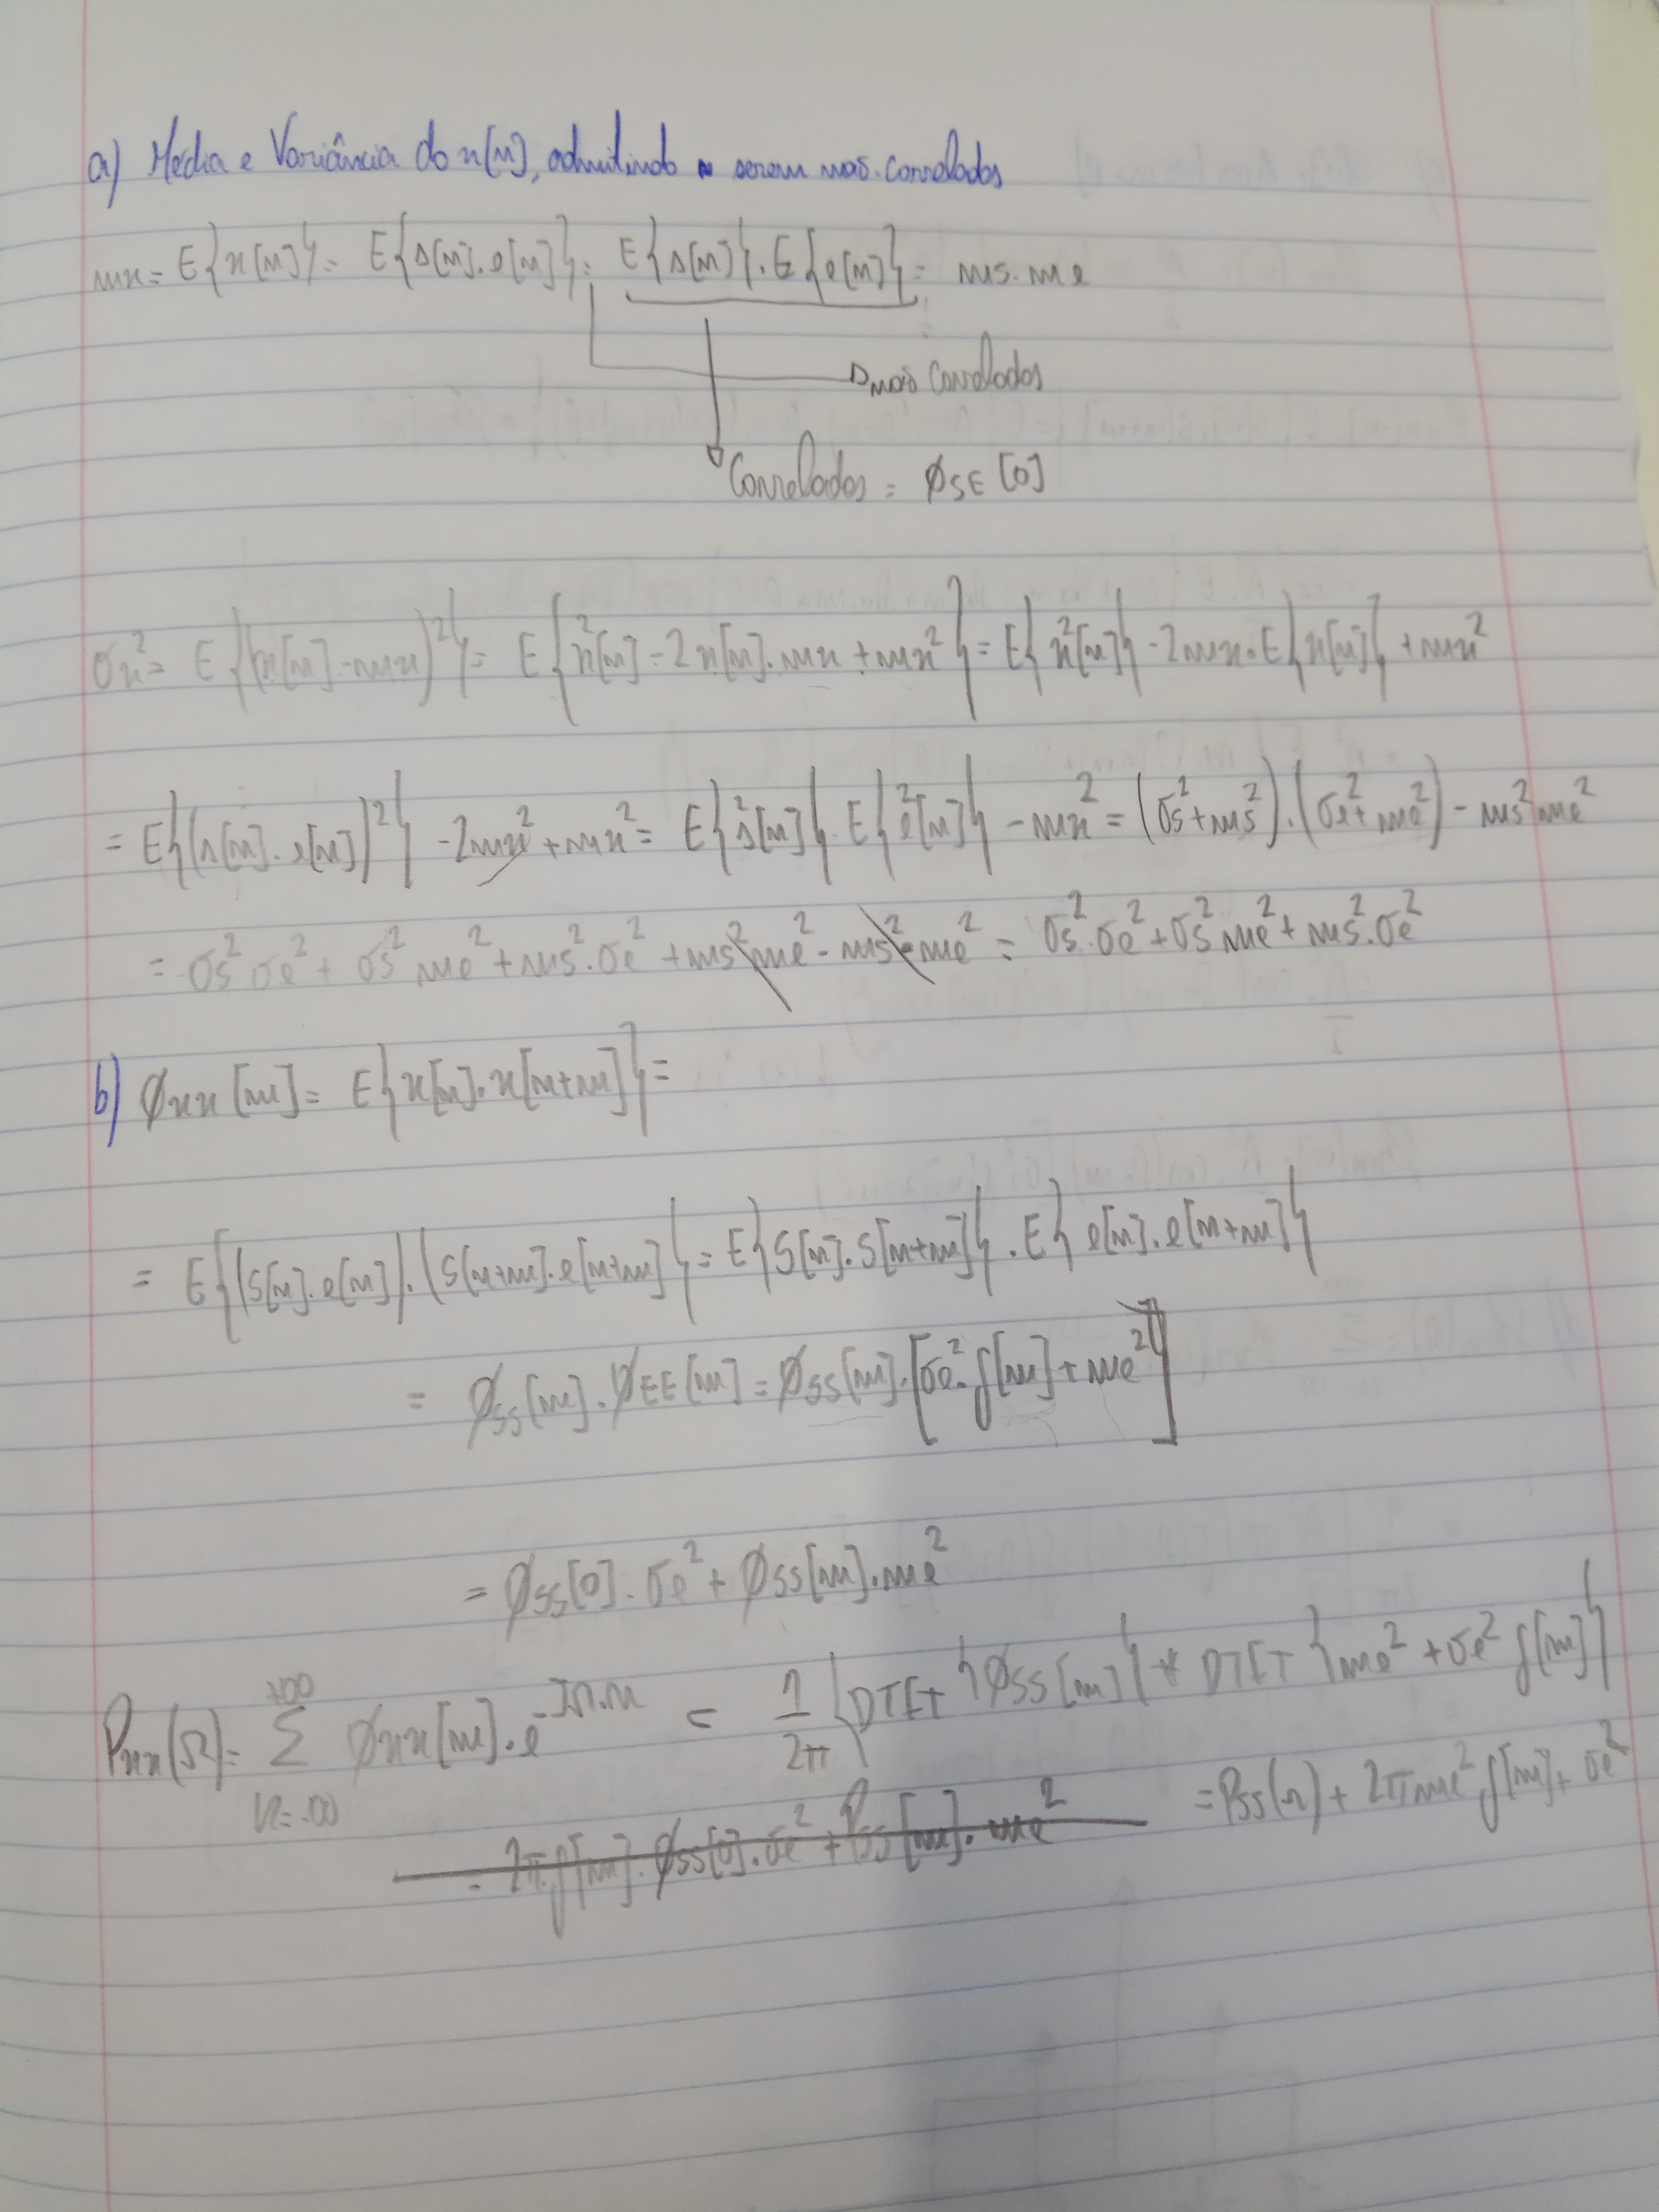 a) Média e Variância do x[n], admitindo serem não-correlados
mx = E{x[n]} = E{s[n].e[n]} = E{s[n]}.E{e[n]} = ms.me
não correlados
Correlados = ϕSE[0]
σx² = E{(x[n]-mx)²} = E{x²[n]-2x[n].mx+mx²} = E{x²[n]}-2mx.E{x[n]}+mx²
= E{(s[n].e[n])²} -2mx²+mx² = E{s²[n]}.E{e²[n]} - mx² = (σs²+ms²).(σe²+me²) - ms²me²
= σs²σe² + σs²me² + ms².σe² + ms²me² - ms²me² = σs².σe²+σs²me²+ms².σe²
b) ϕxx[m] = E{x[n].x[n+m]} =
= E{(s[n].e[n]).(s[n+m].e[n+m]} = E{s[n].s[n+m]}.E{e[n].e[n+m]}
= ϕss[m].ϕEE[m] = ϕss[m].[σe².δ[m]+me²]
= ϕss[0].σe² + ϕss[m].me²
Pxx(Ω) = Σ ϕxx[m].e^-JΩ.m = 1/2π {DTFT{ϕss[m]} * DTFT{me²+σe²δ[m]}
+∞
= 2πδ[m].ϕss[0].σe²+Pss[m].me² = Pss(Ω) + 2πme²δ[m] + σe²